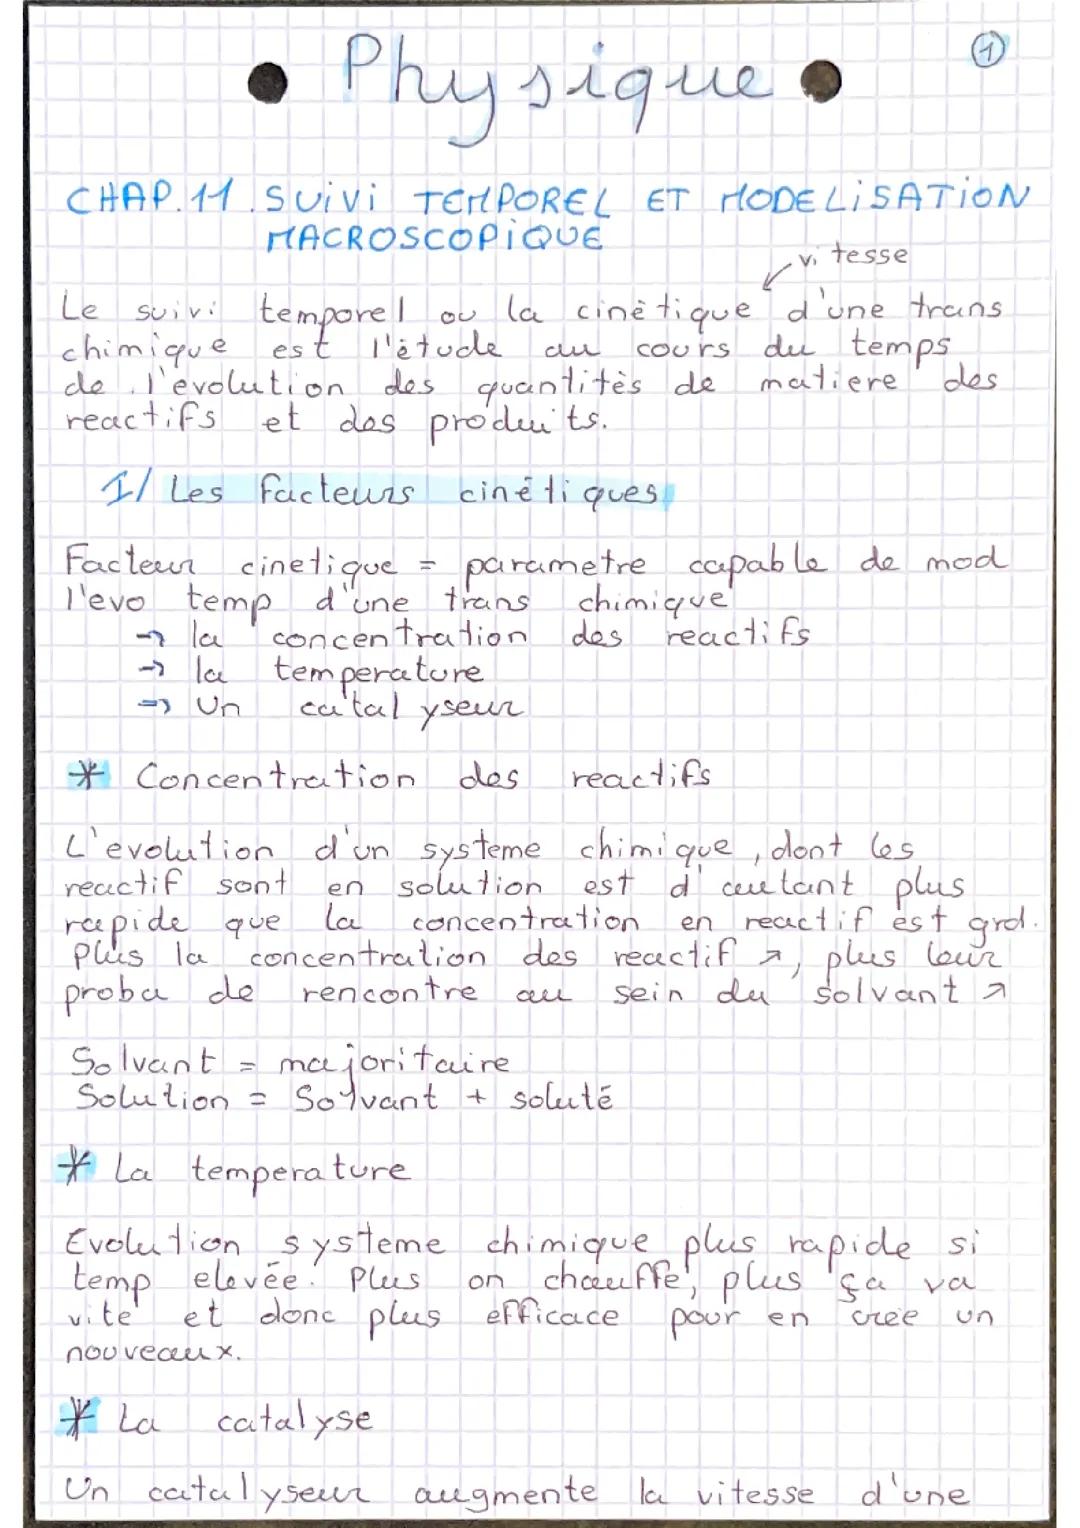 Physique
1
CHAP.11. SUiVi TEMPOREL ET MODELiSATiON
MACROSCOPiQUE
vitesse
Le suivi temporel ou la cinètique d'une trans
chimique est l'ètude au cours du temps
de l'evolution des quantitès de matiere des
reactifs et des produits.
I/ Les facteurs cinétiques
Facteur cinetique = parametre capable de mod
l'evo temp d'une trans chimique
→ la concentration des reactifs
→ la temperature
⇒ Un catalyseur
* Concentration des reactifs
L'evolution d'un systeme chimique, dont les
reactif sont en solution est d'autant plus
rapide que la concentration en reactif est grd.
Plus la concentration des reactif ↗, plus leur
proba de rencontre au sein du solvant ↗
Solvant = majoritaire
Solution = Solvant + soluté
* La temperature
Evolution systeme chimique plus rapide si
temp elevée. Plus on chauffe, plus ça va
vite et donc plus efficace pour en crée un
nouveaux.
* La catalyse
Un catalyseur augmente la vitesse d'une